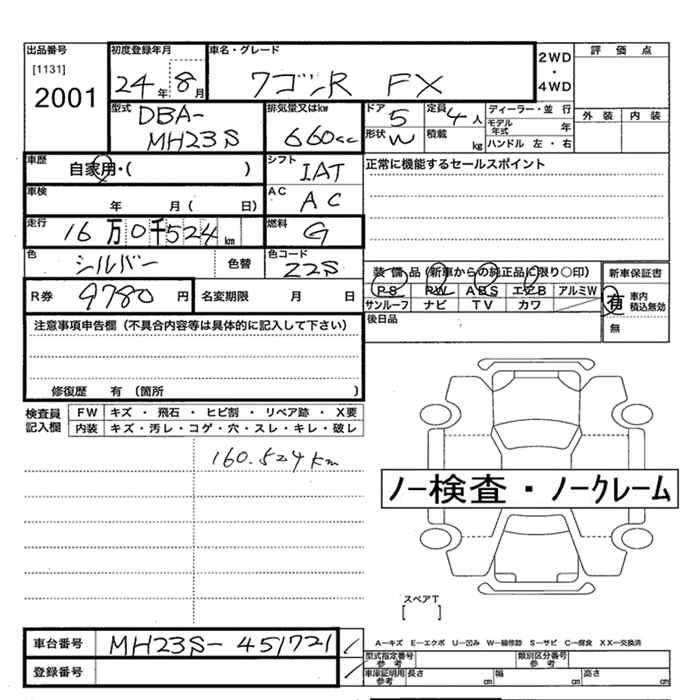 出品番号
[1131]
2001
初度登録年月
24年 8月
車名・グレード
ワゴンR FX
2WD
・
4WD
評価点
外装 内装
型式
DBA-
MH23S
排気量又はkw
660cc
ドア
5
定員
4人
形状
W
積載
kg
ディーラー・並行
モデル年式 年
ハンドル 左・右
車歴
自家用・( )
シフト
IAT
正常に機能するセールスポイント
車検
年 月( 日)
AC
AC
走行
16万0千524km
燃料
G
色
シルバー
色替
色コード
Z2S
装備品(新車からの純正品に限り○印)
PS PW ABS エアB アルミW
サンルーフ ナビ TV カワ
新車保証書
有 車内積込無効
無
R券
9780円
名変期限 月 日
後日品
注意事項申告欄(不具合内容等は具体的に記入して下さい)
修復歴 有(箇所 )
検査員記入欄
FW キズ・飛石・ヒビ割・リペア跡・X要
内装 キズ・汚レ・コゲ・穴・スレ・キレ・破レ
160.524km
ノー検査・ノークレーム
スペアT
[ ]
車台番号
MH23S-451721
登録番号
A－キズ E－エクボ U－凹み W－補修跡 S－サビ C－腐食 XX－交換済
型式指定番号
参考
類別区分番号
参考
車庫証明用
参考
長さ cm
幅 cm
高さ cm